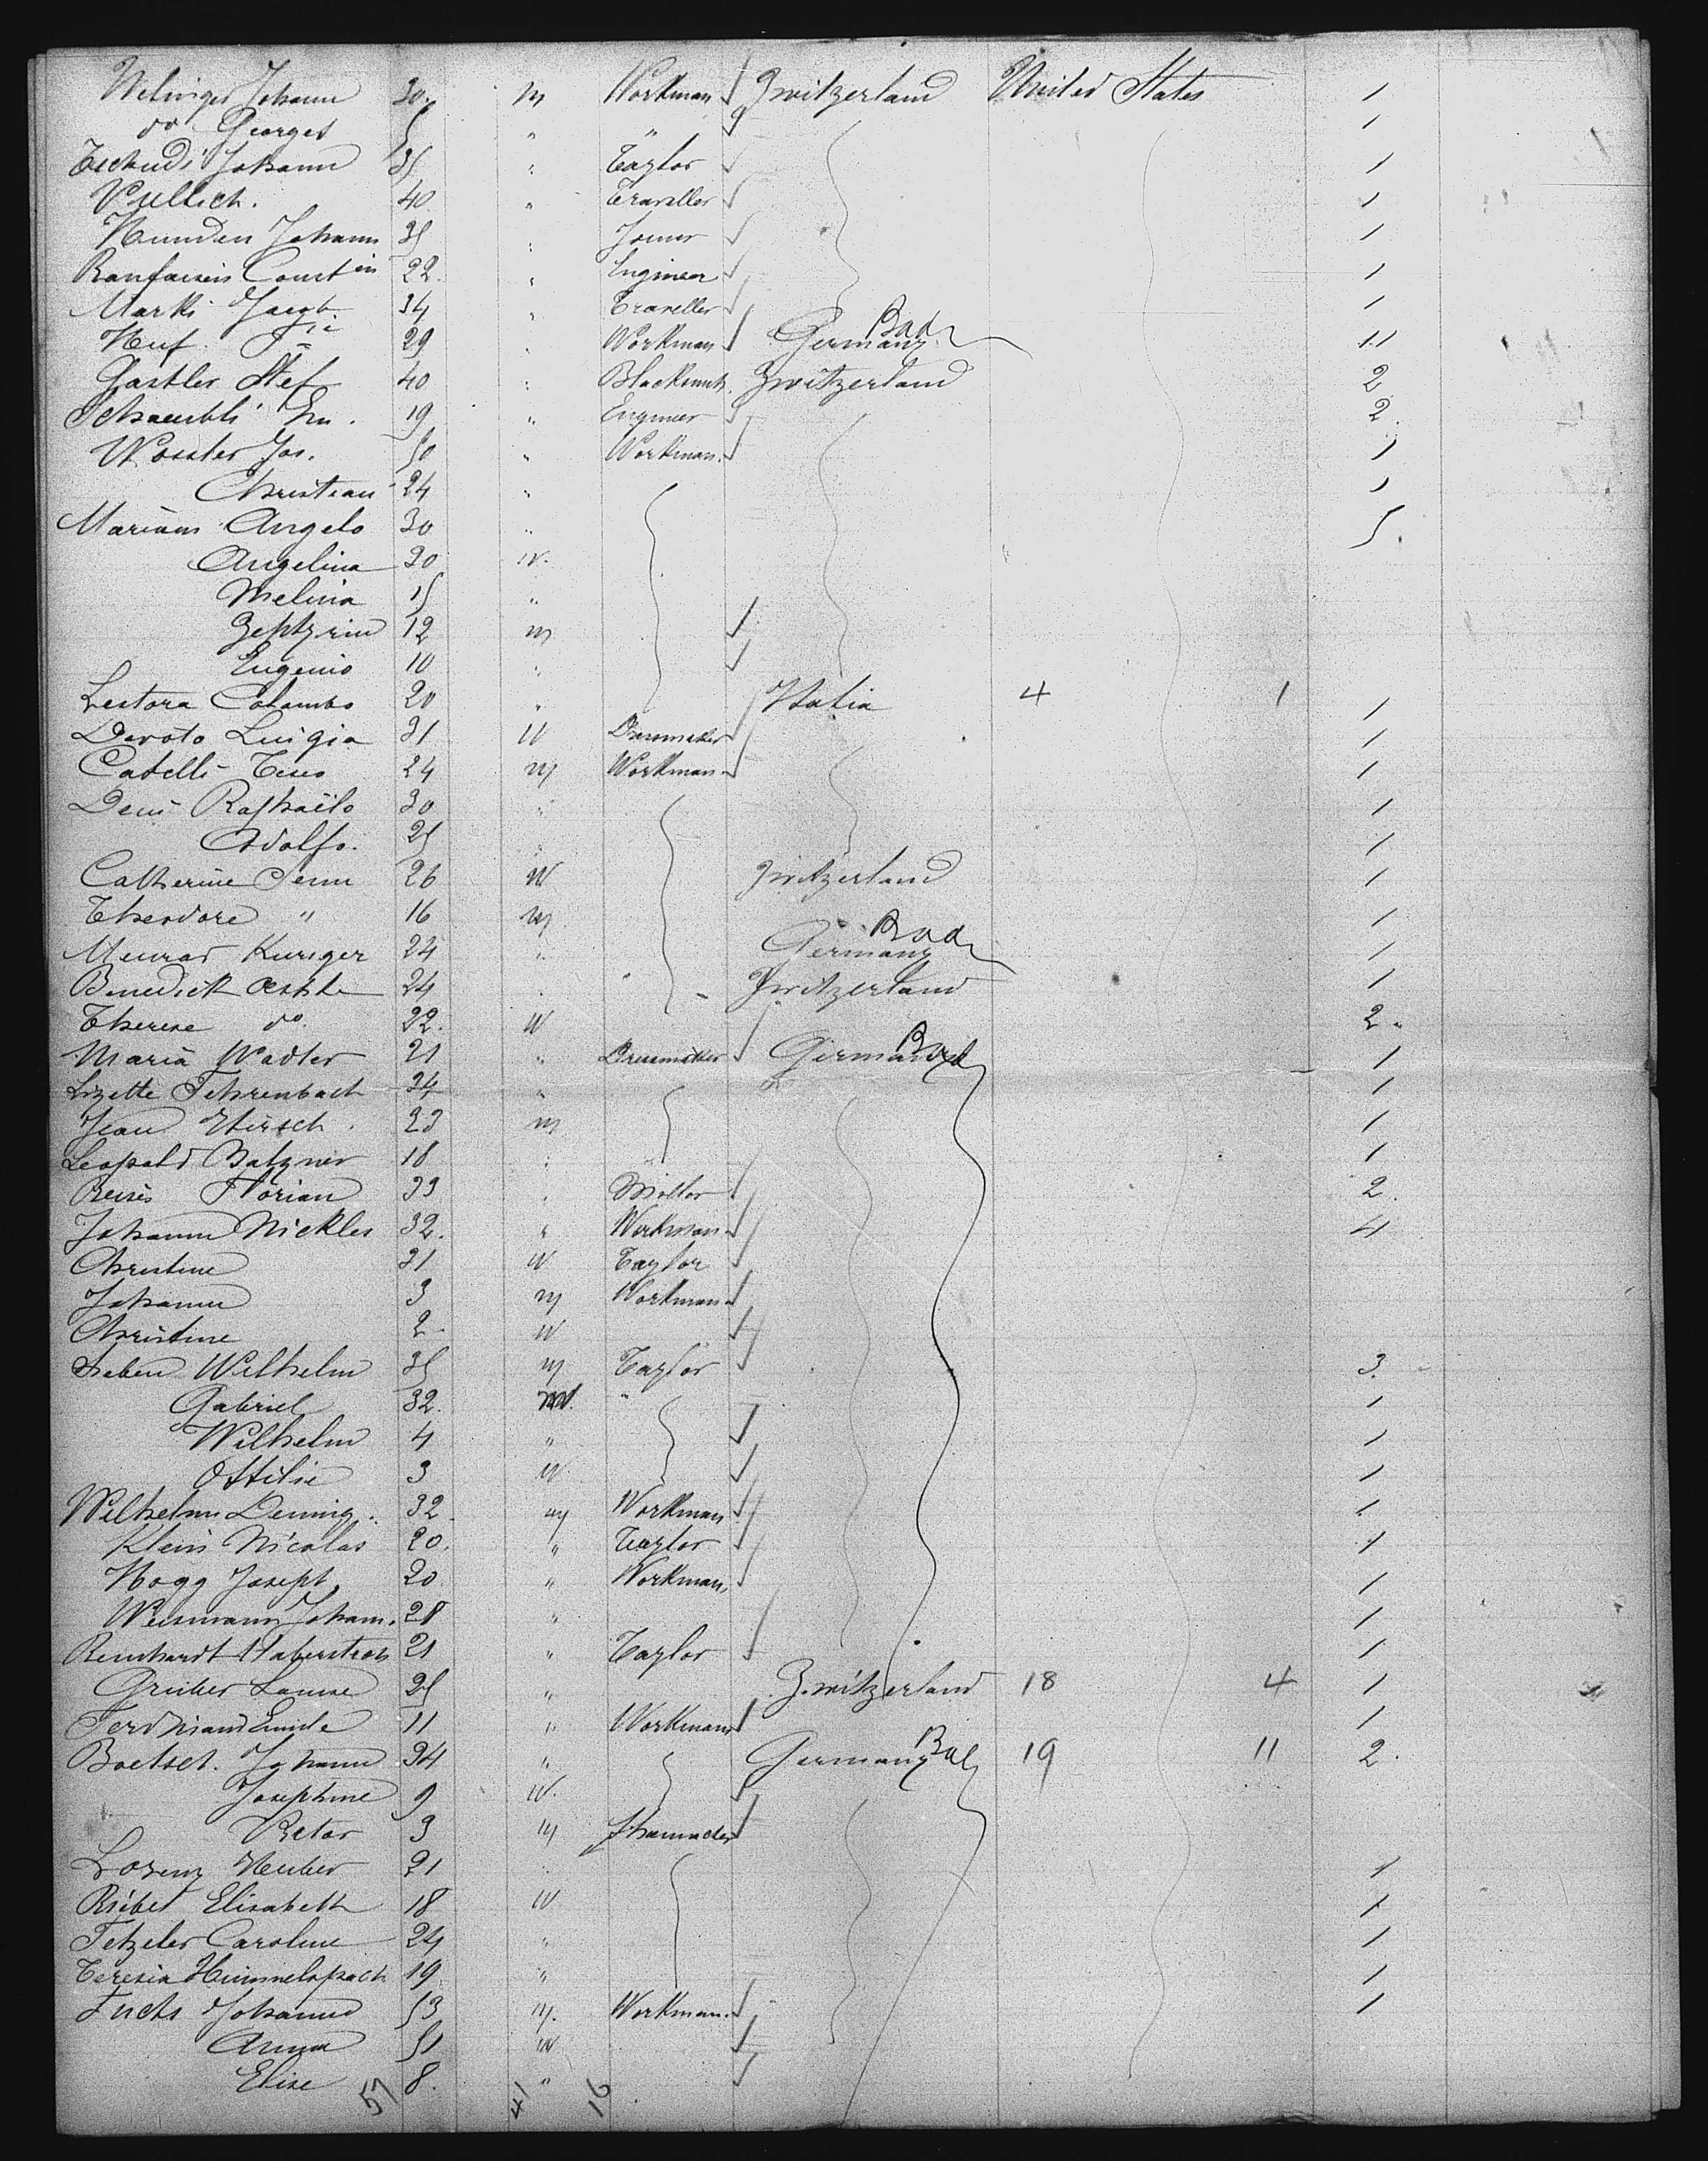 Johann 30. m Workman Zwitzerland United States 1
do Georges 5 " " 1
Tschudi Johann 35 " Taylor 1
40 " Traveller 1
Johann 35 " Joiner 1
22. " Engineer 1
Marki Jacob 34 " Traveller 1
Huf 29 " Workman Germany Bad 11
Gastler Stef 40 " Blacksmith Zwitzerland 2
19 " Engineer 2.
Jos. 50 " Workman. 1
Christian 24 " 1
Mariani Angelo 30 " 5.
Angelina 30 W.
Melina 15 "
Zephyrin 12 m
Eugenio 10 "
Lestora Colombo 20 " Italia 4 1 1
Devoto Luigia 31 W Dressmaker 1
Catelli 24 m Workman 1
Raphaëlo 30 " 1
Adolfo. 25 " 1
Catherine Senn 26 W Zwitzerland 1
Theodore " 16 m 1
24 " Germany Bad 1
Benedickt 24 " Zwitzerland 1
Therese do. 22. W 2.
Maria Wadler 21 " Dressmaker Germany Bad 1
Lizette Fehrenbach 24 " 1
Jean Hirsch. 23 m 1
Leopold Batzner 18 " 1
Florian 33 " Miller 2.
Johann Nickles 32. " Workman 4
Christine 31 W Taylor
Johann 3 m Workman
Christine 2 W
Wilhelm 35 m Taylor 3.
Gabriel 32. " 1
Wilhelm 4 " 1
Ottilie 3 W 1
Wilhelm Dennig. 32 m Workman 1
Klein Nicolas 20. " Taylor 1
Hogg Joseph 20 " Workman, 1
Weismann Johann. 28 " 1
Reinhardt Haberstroh 21 " Taylor 1
Gruber Louise 25 " Zwitzerland 18 4 1
Ferdinand Emile 11 " Workman 1
Boetsch. Johann 34 " Germany Bad 19 11 2.
Josephine 9 W.
Victor 3 m
Lorenz Huber 21 " 1
Elisabeth 18 W 1
Fetzeler Caroline 24 " 1
Teresia Himmelspach 19 " 1
Fuchs Johann 53 m. Workman. 1
Anna 51 W
Elise 8. "
57 41 16